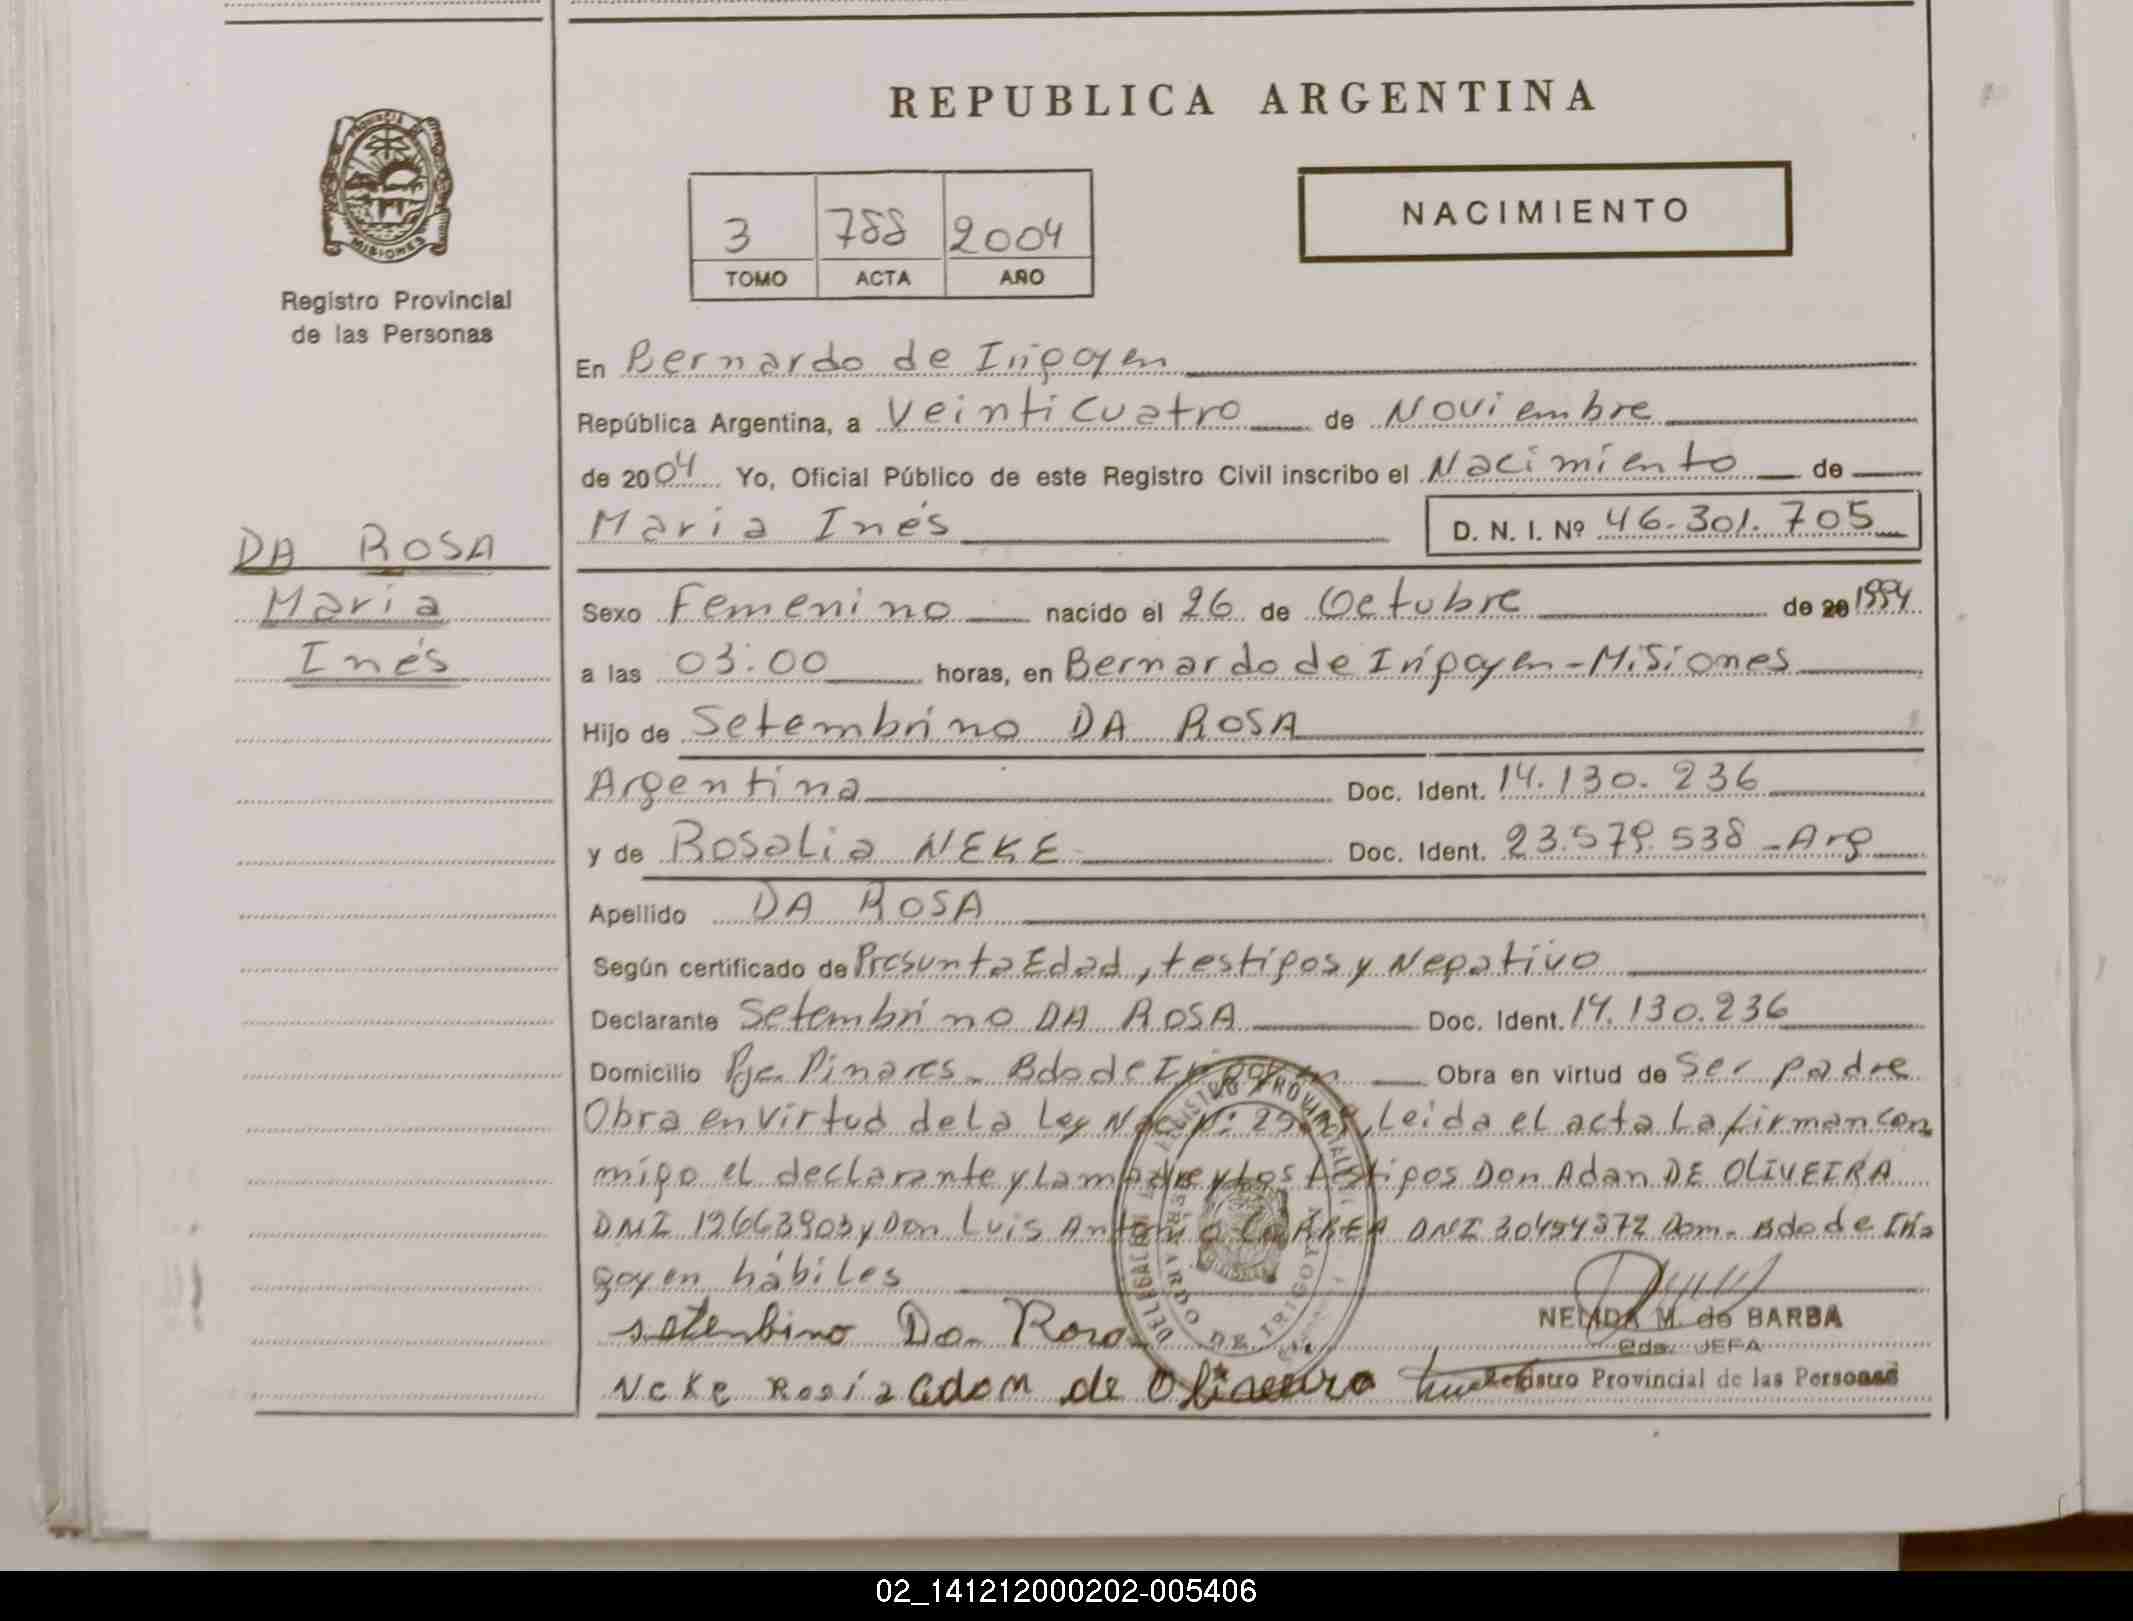 REPUBLICA ARGENTINA
PROVINCIA DE MISIONES
Registro Provincial
de las Personas
3 788 2004
TOMO ACTA AÑO
NACIMIENTO
En Bernardo de Irigoyen
República Argentina, a Veinticuatro de Noviembre
de 2004 Yo, Oficial Público de este Registro Civil inscribo el Nacimiento de
Maria Inés D. N. I. Nº 46.301.705
DA ROSA
Maria
Inés
Sexo Femenino nacido el 26 de Octubre de 20 1994
a las 03:00 horas, en Bernardo de Irigoyen - Misiones
Hijo de Setembrino DA ROSA
Argentina Doc. Ident. 14.130.236
y de Rosalia NEKE Doc. Ident. 23.579.538 - Arg
Apellido DA ROSA
Según certificado de Presunta Edad, testigos y Negativo
Declarante Setembrino DA ROSA Doc. Ident. 14.130.236
Domicilio Pje. Pinares - Bdo de Irigoyen Obra en virtud de Ser padre
Obra en virtud de la Ley Nac Nº: Leida el acta la firman con
migo el declarante y la madre y los testigos Don Adan DE OLIVEIRA
DNI 12663903 y Don Luis Antonio CORREA DNI Dom. Bdo de Iri
goyen hábiles
setenbino Da Rosa
NELIDA M. de BARBA
JEFA
Neke Rosía adam de Oliveira Registro Provincial de las Personas
REGISTRO PROVINCIAL
DELEGACION BERNARDO DE IRIGOYEN
02_141212000202-005406